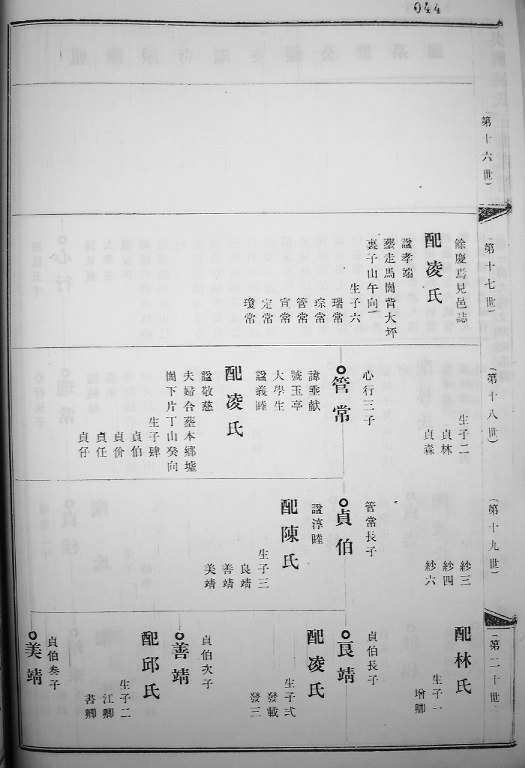 044
第十六世
第十七世
餘慶焉見邑誌
配凌氏
諡孝端
墓走馬崗背大坪
裏子山午向
生子六
瑞常
琮常
管常
宣常
定常
瓊常
第十八世
生子二
貞林
貞森
心行三子
管常
諱乘猷
號玉亭
大學生
諡義睦
配凌氏
諡敬慈
夫婦合墓本鄉墟
崗下片丁山癸向
生子肆
貞伯
貞份
貞任
貞仔
第十九世
紗三
紗四
紗六
管常長子
貞伯
諡淳睦
配陳氏
生子三
良靖
善靖
美靖
第二十世
配林氏
生子一
增卿
貞伯長子
良靖
配凌氏
生子弍
發載
發三
貞伯次子
善靖
配邱氏
生子二
江卿
書卿
貞伯叁子
美靖